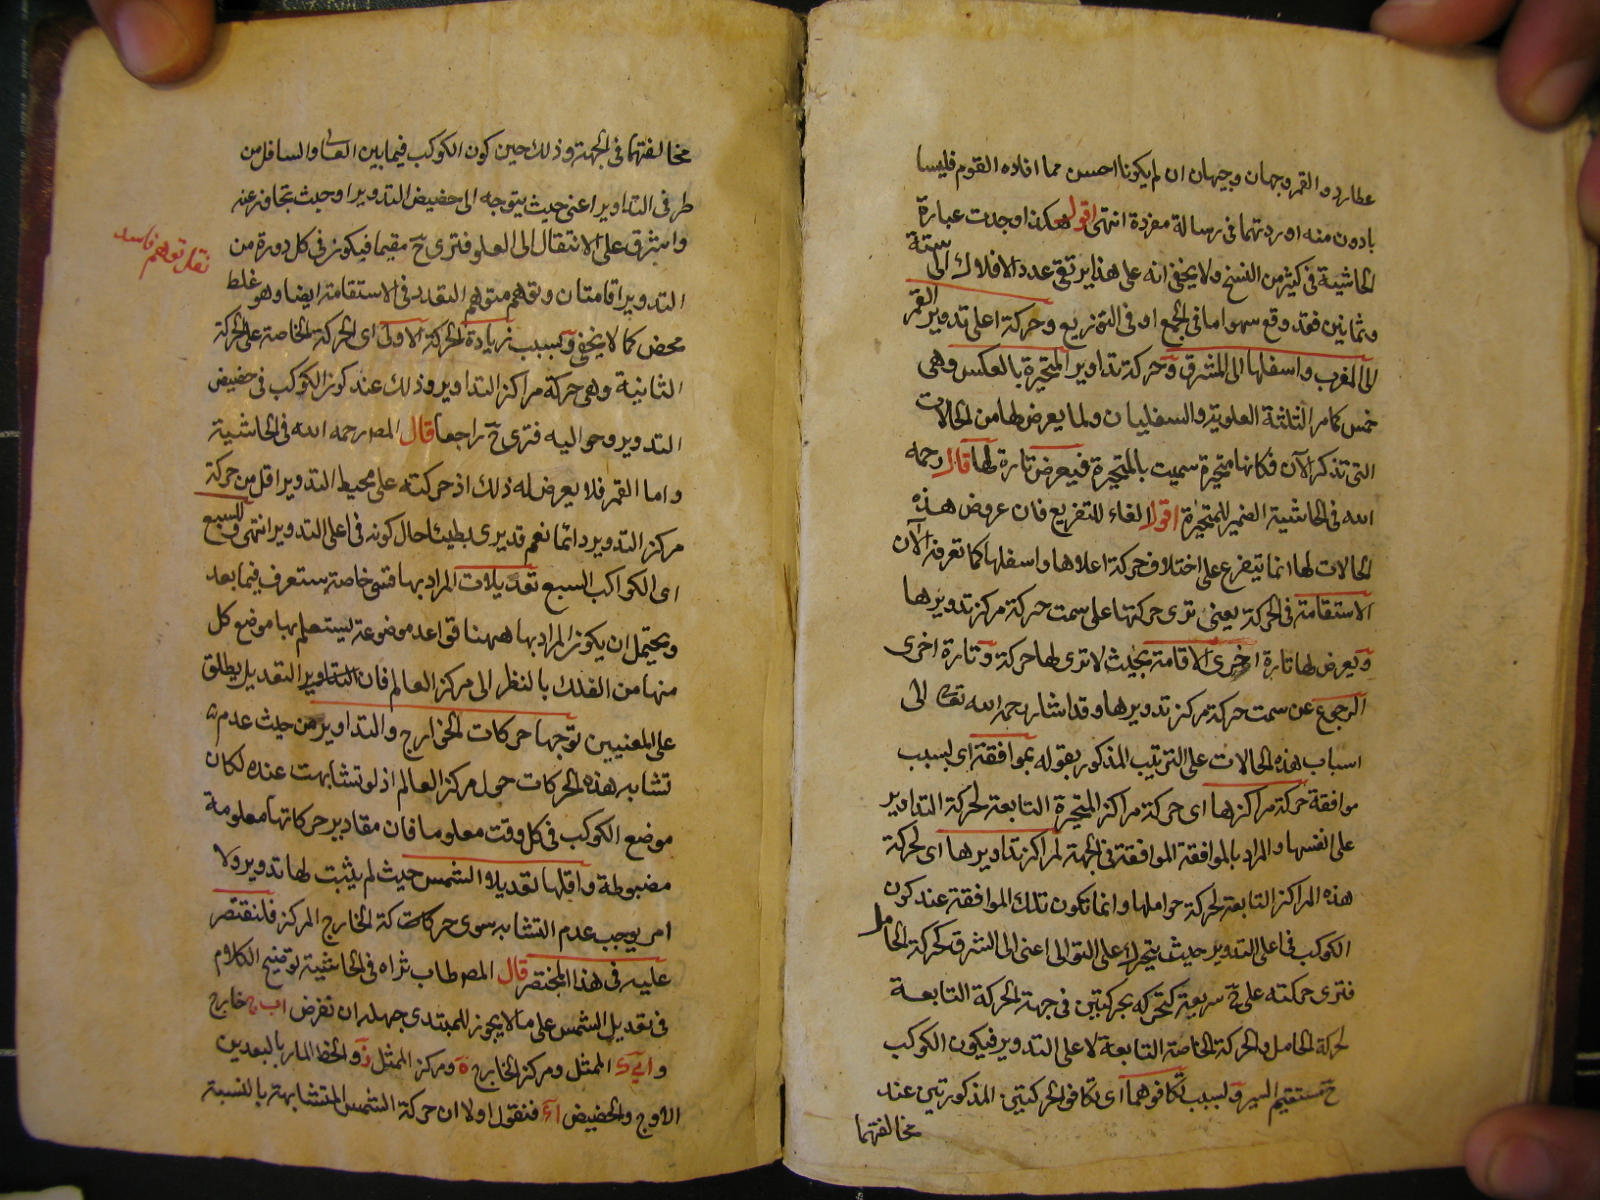 عطارد والقمر وجهان وجيهان ان لم يكونا احسن مما افاده القوم فليسا
بادون منه اوردتهما فى رسالة مفردة انتهى اقول هكذا وجدت عبارة
الحاشية فى كثير من النسخ ولا يخفى انه على هذا يرتقى عدد الافلاك الى ستة
وثمانين فقد وقع سهو اما فى الجمع او فى التوزيع وحركة اعلى تدوير القمر
الى المغرب واسفلها الى المشرق وحركة تداوير المتحيرة بالعكس وهى
خمس كما مر الثلثة العلوية والسفليان ولما يعرض لها من الحالات
التى تذكر الآن فكانها متحيرة سميت بالمتحيرة فيعرض تارة لها قال رحمه
الله فى الحاشية الضمير للمتحيرة اقول الفاء للتفريع فان عروض هذه
الحالات لها انما يتفرع على اختلاف حركة اعلاها واسفلها كما تعرفه الآن
الاستقامة فى الحركة يعنى ترى حركتها على سمت حركة مركز تدويرها
ويعرض لها تارة اخرى الاقامة بحيث لا ترى لها حركة وتارة اخرى
الرجوع عن سمت حركة مركز تدويرها وقد اشار رحمه الله تعالى الى
اسباب هذه الحالات على الترتيب المذكور بقوله بموافقة اى بسبب
موافقة حركة مراكزها اى حركة مراكز المتحيرة التابعة لحركة التداوير
على انفسها والمراد بالموافقة الموافقة فى الجهة لمراكز تداويرها اى لحركة
هذه المراكز التابعة لحركة حواملها وانما تكون تلك الموافقة عند كون
الكوكب فى اعلى التدوير حيث يتحرك على التوالى اعنى الى الشرق كحركة الحامل
فترى حركته على ح سريعة لتحركه بحركتين فى جهة الحركة التابعة
لحركة الحامل والحركة الخاصة التابعة لاعلى التدوير فيكون الكوكب
ح مستقيم السير وبسبب تكافوهما اى تكافو الحركتين المذكورتين عند
مخالفتهما
مخالفتهما فى الجهة وذلك حين كون الكوكب فيما بين العالى والسافل من
طرفى التداوير اعنى حيث يتوجه الى حضيض التدوير او حيث تجاوز عنه
واشرق على الانتقال الى العلو فترى ح مقيما فيكون فى كل دورة من
التدوير اقامتان وتوهم متوهم التعدد فى الاستقامة ايضا وهو غلط
نقل توهم فاسد
محض كما لا يخفى وبسبب زيادة الحركة الاولى اى الحركة الخاصة على الحركة
الثانية وهى حركة مراكز التداوير وذلك عند كون الكوكب فى حضيض
التدوير وحواليه فترى ح راجعا قال المص رحمه الله فى الحاشية
واما القمر فلا يعرض له ذلك اذ حركته على محيط التدوير اقل من حركة
مركز التدوير دائما نعم قد يرى بطيئا حال كونه فى اعلى التدوير انتهى وللسبع
اى الكواكب السبع تعديلات المراد بها قسى خاصة ستعرف فيما بعد
ويحتمل ان يكون المراد بها ههنا قواعد موضوعة يستعلم بها موضع كل
منها من الفلك بالنظر الى مركز العالم فان التعديل يطلق
على المعنيين توجها حركات الخوارج والتداوير من حيث عدم
تشابه هذه الحركات حول مركز العالم اذ لو تشابهت عنده لكان
موضع الكوكب فى كل وقت معلوما فان مقادير حركاتها معلومة
مضبوطة واقلها تعديلا الشمس حيث لم يثبت لها تدوير ولا
امر يوجب عدم التشابه سوى حركات الخارج المركز فلنقتصر
عليه فى هذا المختصر قال المص طاب ثراه فى الحاشية توضيح الكلام
فى تعديل الشمس على ما لا يجوز للمبتدى جهله ان تفرض اب ج خارج
الممثل ومركز الخارج ه ومركز الممثل ز والخط المار بالبعدين
الاوج والحضيض اء فنقول اولا ان حركة الشمس المتشابهة بالنسبة